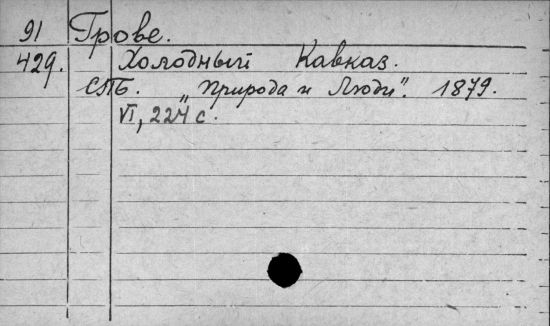 91 Грове.
429. Холодный Кавказ.
СПБ. „Природа и Люди“. 1879.
VI, 224 с.